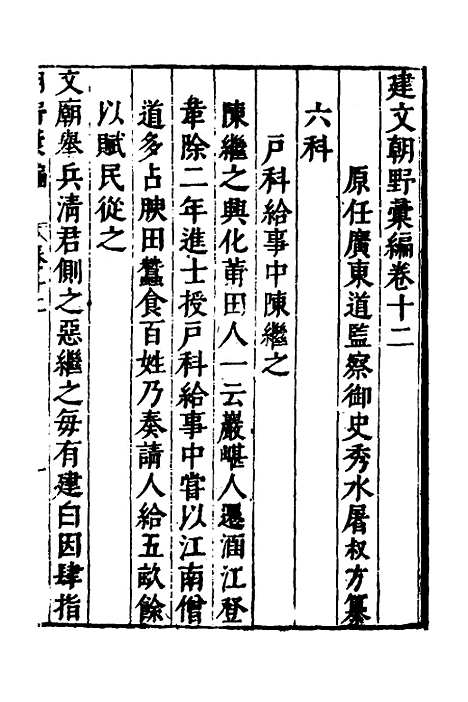 建文朝野彙編卷十二
原任廣東道監察御史秀水屠叔方纂
六科
戸科給事中陳繼之
陳繼之興化莆田人一云巖嵁人遷涵江登
韋除二年進士授戸科給事中嘗以江南僧
道多占腴田蠶食百姓乃奏請人給五畝餘
以賦民從之
文廟舉兵清君側之惡繼之每有建白因肆指